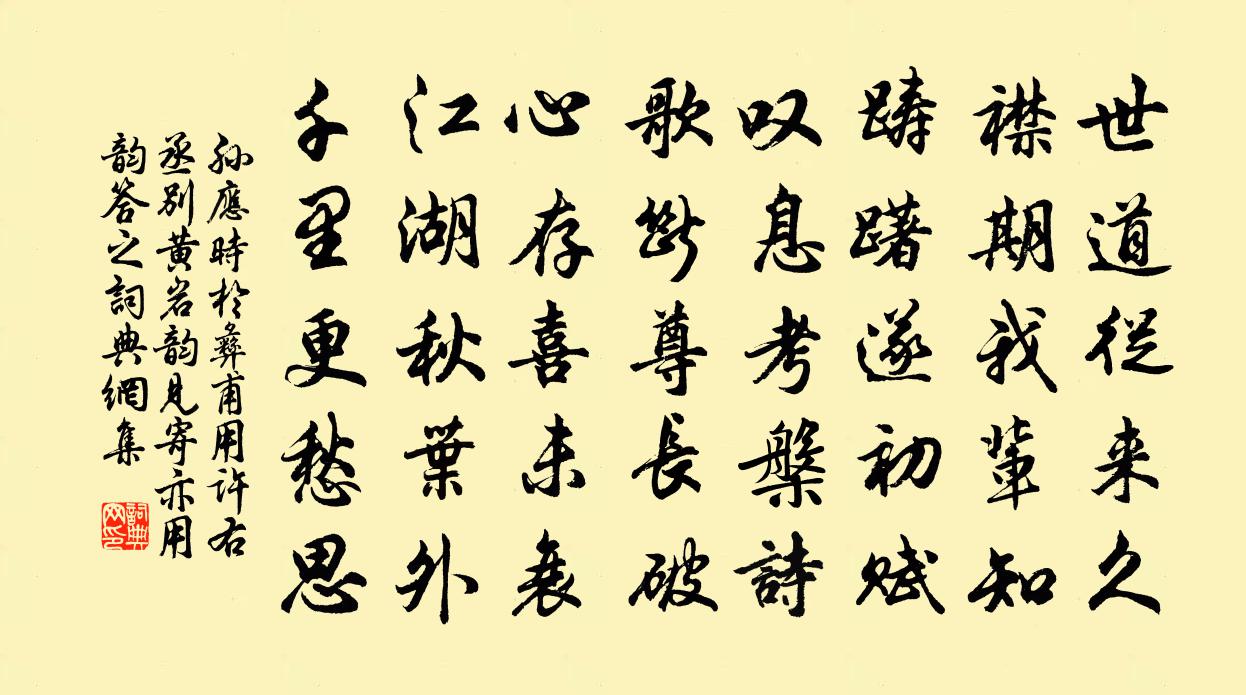 世道從来久
襟期我輩知
躊躇遂初賦
叹息考槃詩
歌断尊長破
心存喜未衰
江湖秋葉外
千里更愁思
孫應時於彝甫用許右
丞别黄岩韵見寄亦用
韵答之詞典網集
詞典
网印